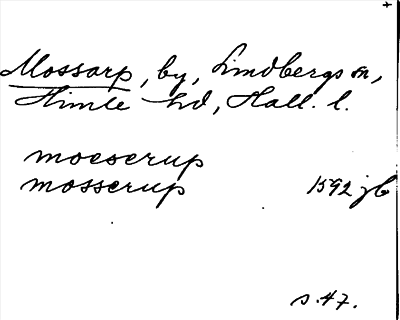 Mossarp, by, Lindbergs sn,
Himle hd, Hall. l.
moeserup
mosserup 1592 jb
s. 47.